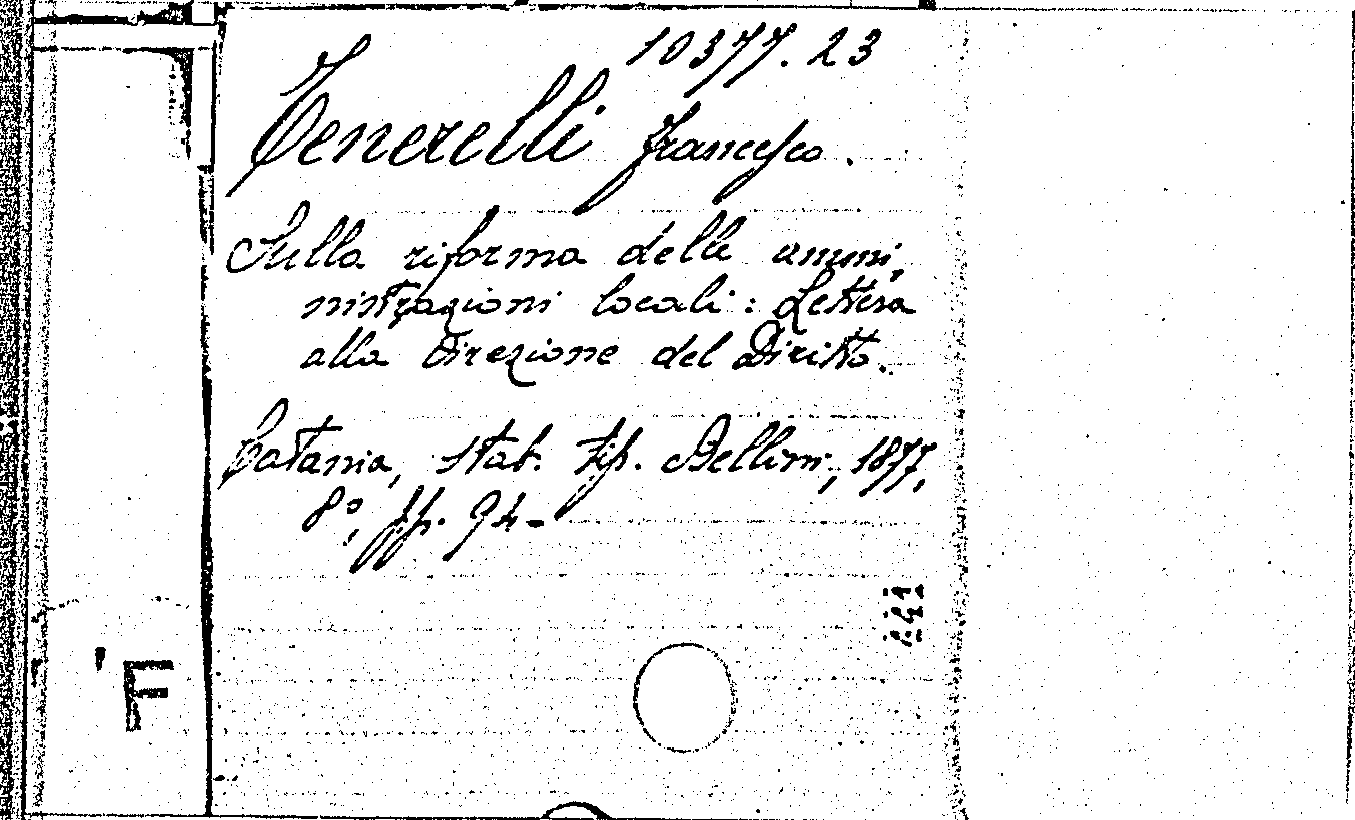 10377.23
Tenerelli Francesco.
Sulla riforma delle ammi,
nistrazioni locali: Lettera
alla direzione del Diritto.
Catania, stab. tip. Bellini, 1877,
8º, pp. 94-
F